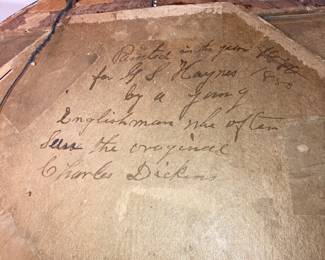 Painted in the year
for G S Haynes 1850
by a young
Englishman who often
Seen the oraginal
Charles Dickins